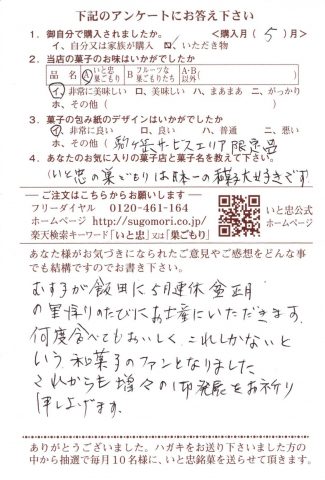 下記のアンケートにお答え下さい
1．御自分で購入されましたか。 <購入月（ 5 ）月>
イ、自分又は家族が購入 ロ、いただき物
2．当店の菓子のお味はいかがでしたか
品 名 A いと忠 巣ごもり B フルーツな 巣ごもりたち A・B 以外( )
イ、非常に美味しい ロ、美味しい ハ、まあまあ ニ、がっかり
ホ、その他（ ）
3．菓子の包み紙のデザインはいかがでしたか
イ、非常に良い ロ、良い ハ、普通 ニ、悪い
ホ、その他（ 駒ヶ岳サービスエリア限定品
4．あなたのお気に入りの菓子店と菓子名を教えて下さい。
いと忠の巣ごもりは日本一の 大好きです
ご注文はこちらからお願いします
フリーダイヤル 0120-461-164
ホームページ http://sugomori.co.jp/
楽天検索キーワード「いと忠」又は「巣ごもり」
いと忠公式
ホームページ
あなた様がお気づきになられたご意見やご感想をどんな事
でも結構ですのでお書き下さい。
むすこが飯田に5月連休 盆 正月
の里帰りのたびにお土産にいただきます。
何度食べてもおいしく、これしかないと
いう 和菓子のファンとなりました
これからも 増々の御発展をお祈り
申し上げます。
ありがとうございました。ハガキをお送り下さいました方の
中から抽選で毎月10名様に、いと忠銘菓を送らせて頂きます。